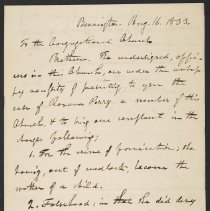 Bennington Aug. 16. 1833.
To the Congregational Church
Brethren. The undersigned, offi-
cers in this Church, are under the unhap-
py necessity of presenting to you the
case of Perry, a member of this
Church, & to bring our complaint on the
charges following;
1. For the crime of fornication; she
having, out of wedlock, become the
mother of a child,
2. Falsehood: in that she did deny